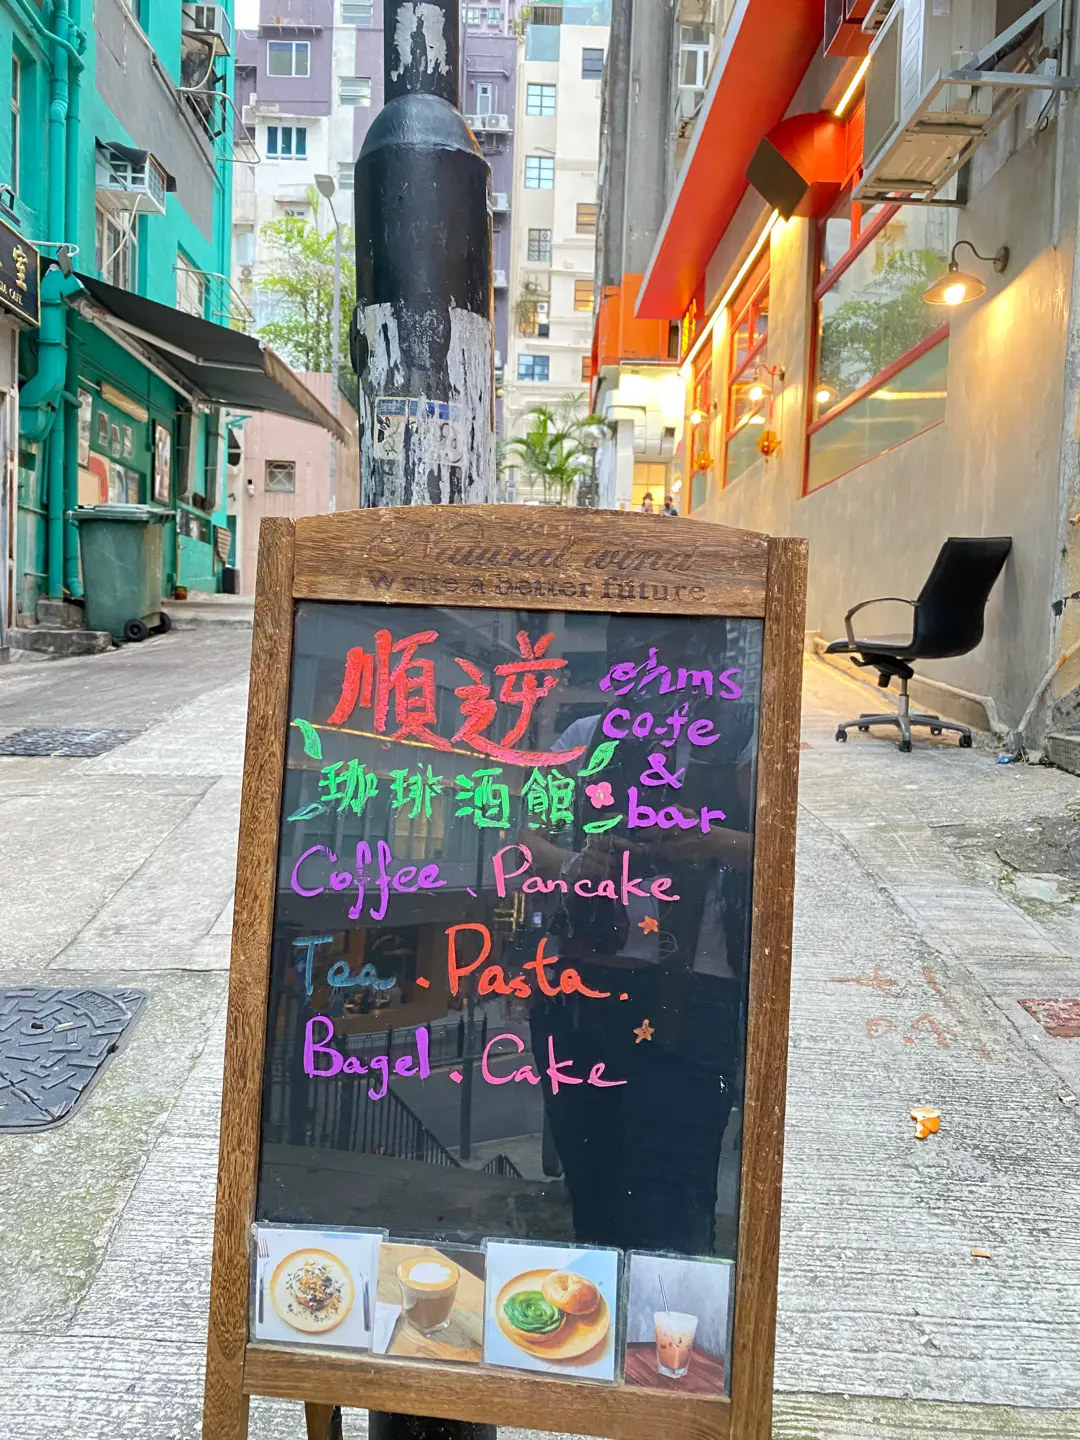 Natural wind
Write a better future
順逆
ohms
cafe
&
bar
珈琲酒館
Coffee、Pancake
Tea . Pasta.
Bagel . Cake